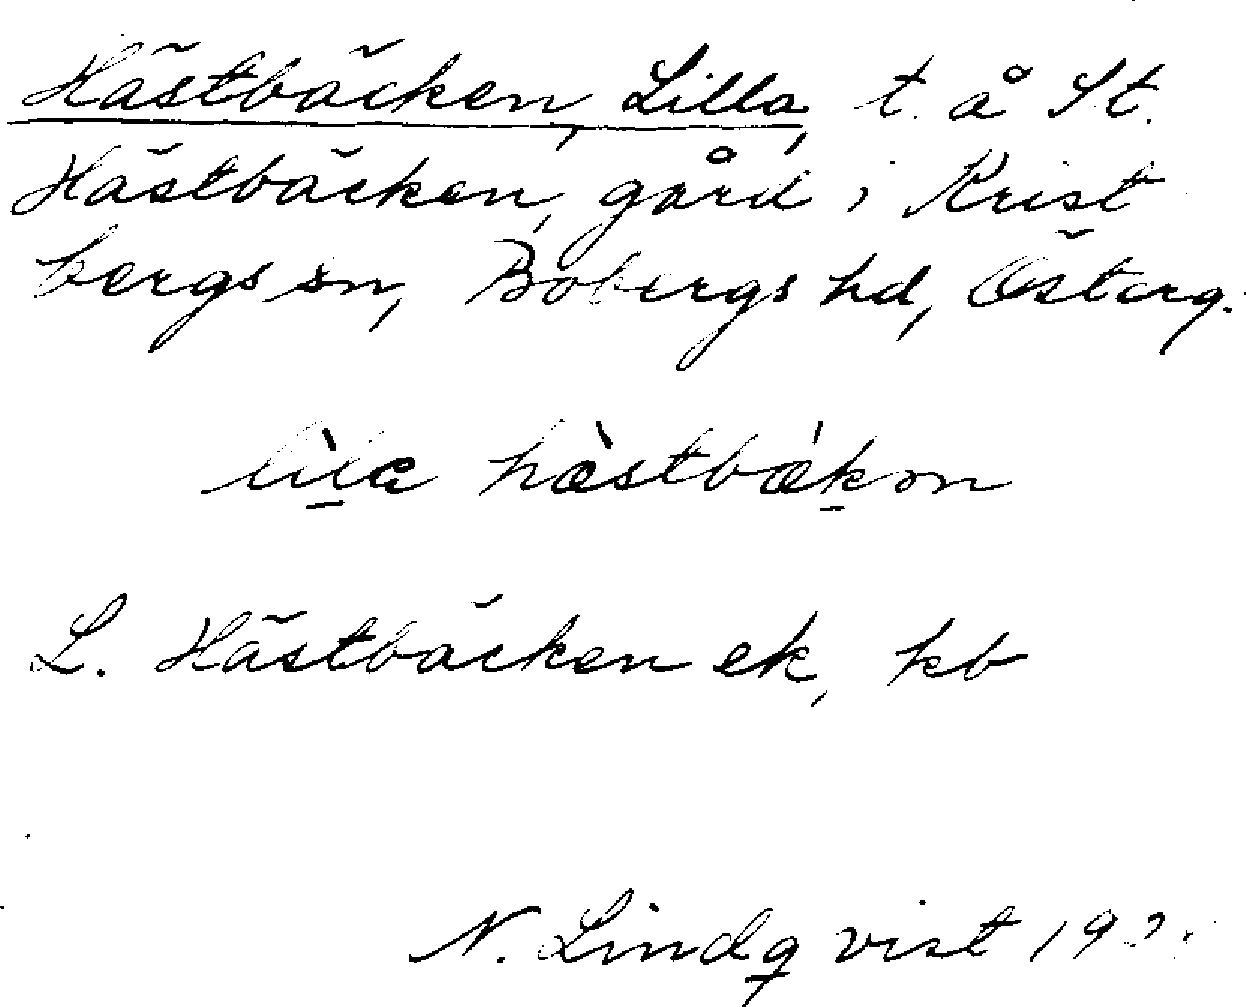 Hästbäcken, Lilla, t. å St.
Hästbäcken, gård i Krist
bergs sn, Bobergs hd, Österg.
lìla hæ̀stbækən
L. Hästbäcken ek, kb
N. Lindqvist